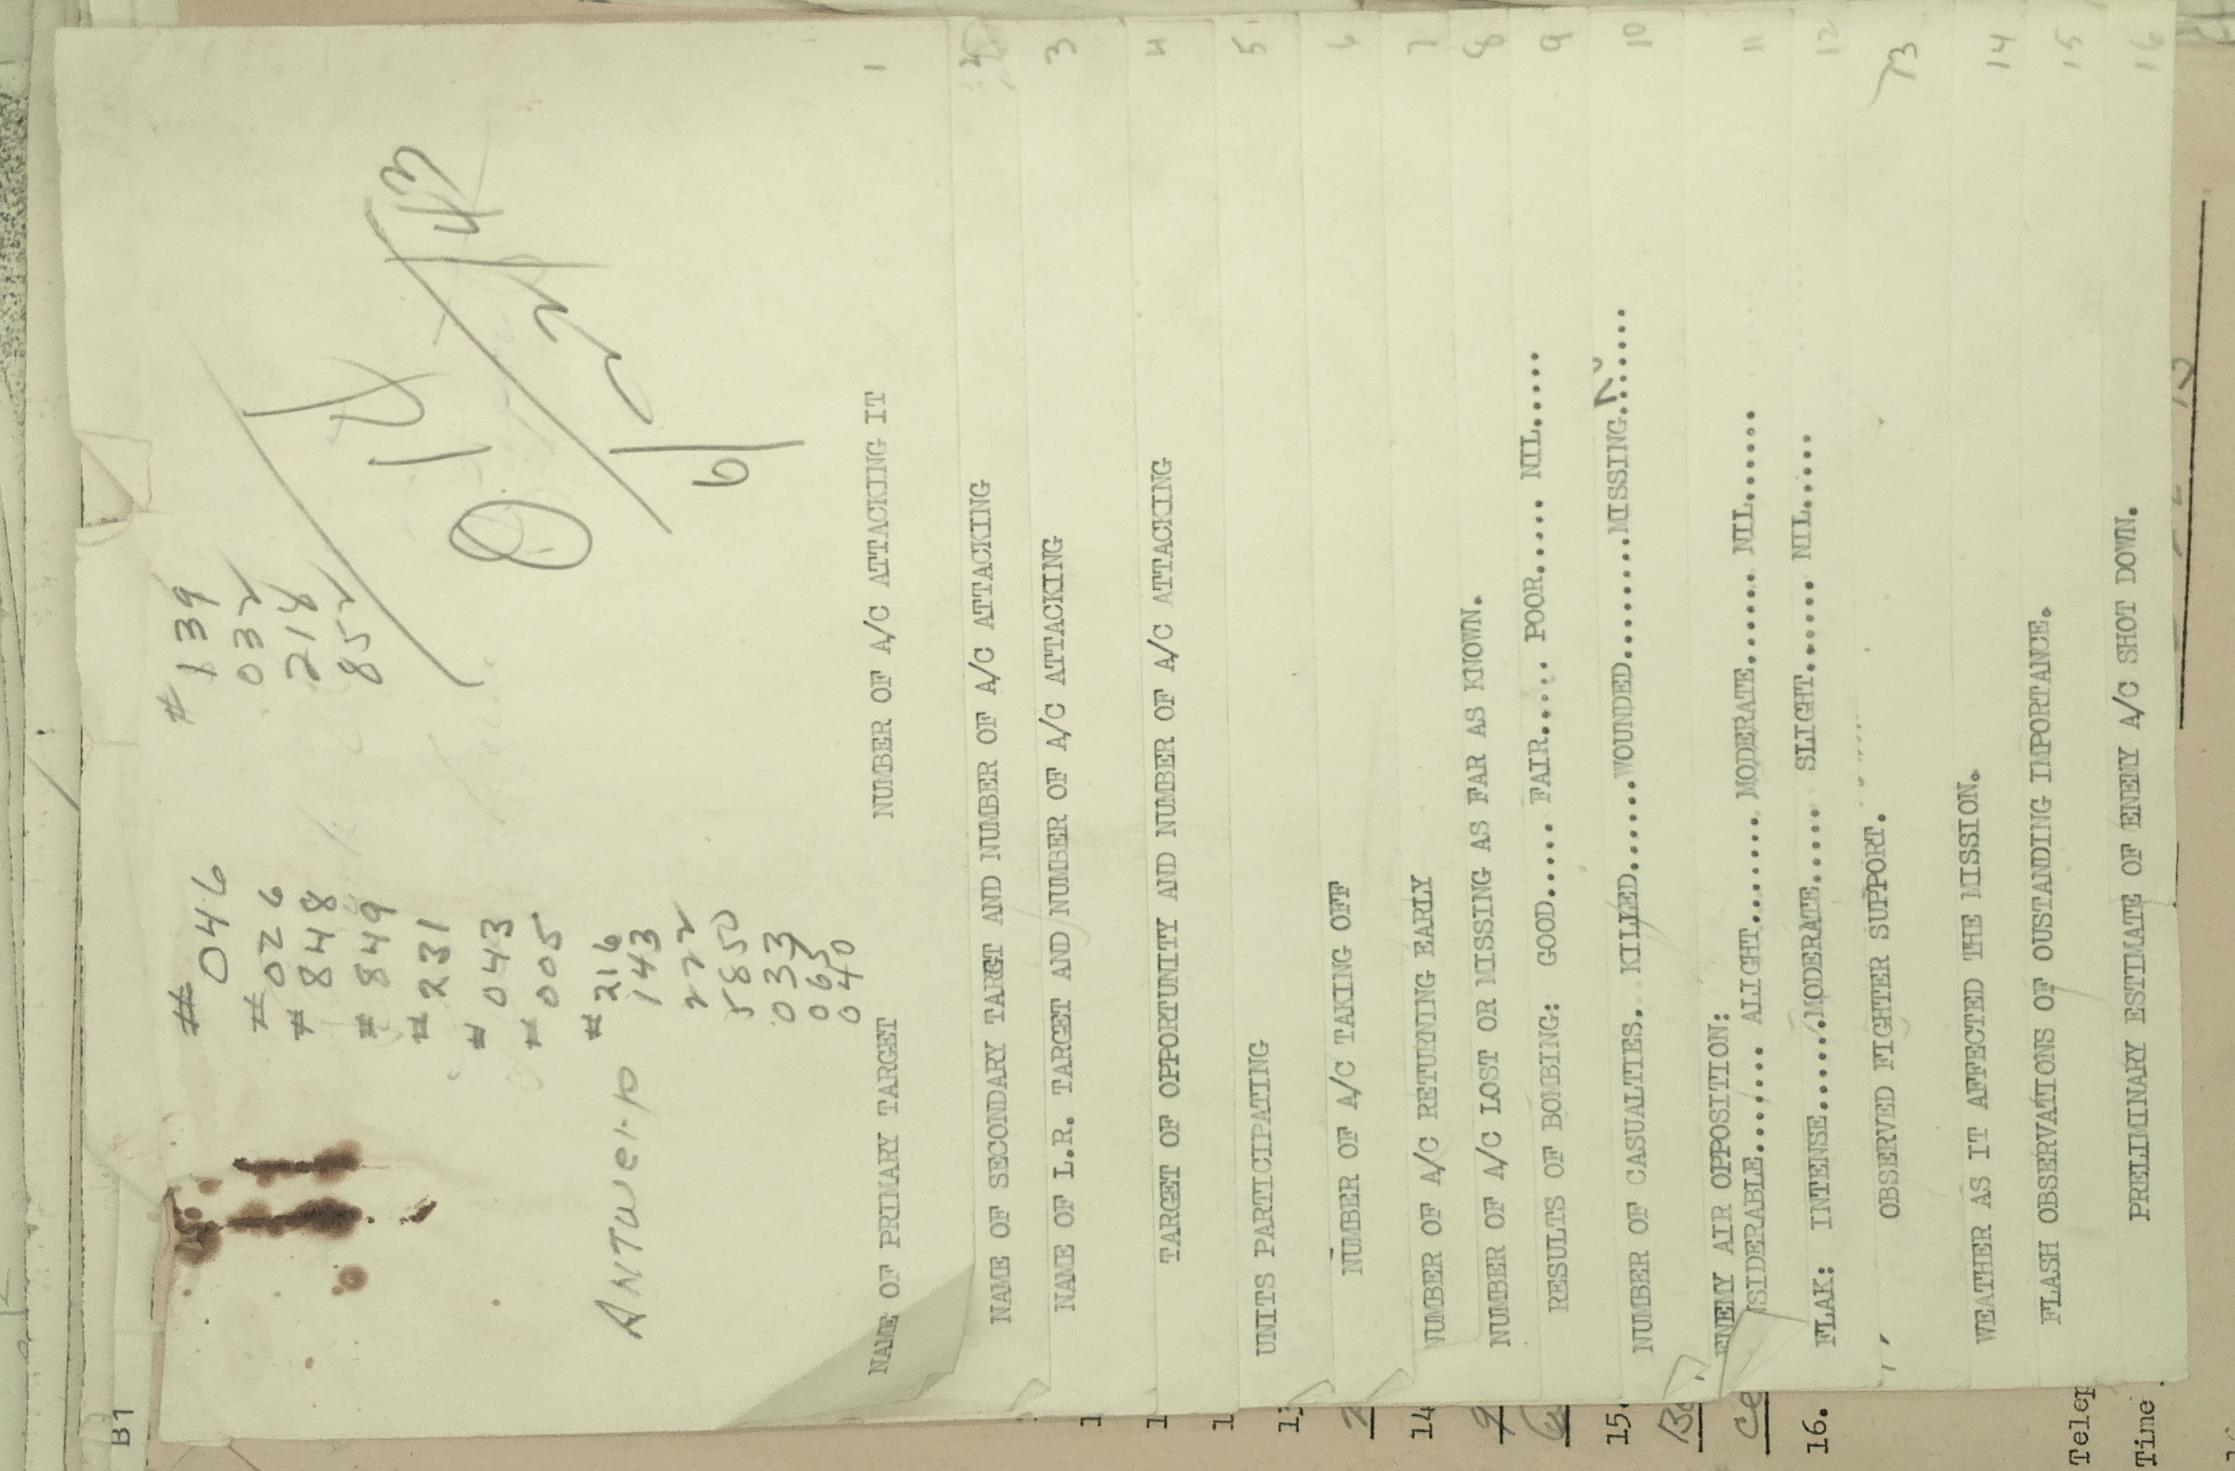 # 046
# 026
# 848
# 849
# 231
# 043
# 005
# 216
143
222
5850
033
063
040
# 139
032
218
852
Antwerp
NAME OF PRIMARY TARGET NUMBER OF A/C ATTACKING IT 1
NAME OF SECONDARY TARGET AND NUMBER OF A/C ATTACKING 2
NAME OF L.R. TARGET AND NUMBER OF A/C ATTACKING 3
TARGET OF OPPORTUNITY AND NUMBER OF A/C ATTACKING 4
UNITS PARTICIPATING 5
NUMBER OF A/C TAKING OFF 6
NUMBER OF A/C RETURNING EARLY 7
NUMBER OF A/C LOST OR MISSING AS FAR AS KNOWN. 8
RESULTS OF BOMBING: GOOD..... FAIR..... POOR..... NIL..... 9
NUMBER OF CASUALTIES. KILLED.......WOUNDED.........MISSING........ 10
ENEMY AIR OPPOSITION: 11
SIDERABLE....... ALIGHT........ MODERATE....... NIL.......
FLAK: INTENSE.......MODERATE..... SLIGHT....... NIL..... 12
OBSERVED FIGHTER SUPPORT. 13
WEATHER AS IT AFFECTED THE MISSION. 14
FLASH OBSERVATIONS OF OUSTANDING IMPORTANCE. 15
PRELIMINARY ESTIMATE OF ENEMY A/C SHOT DOWN. 16
B1
14
15.
16.
Time